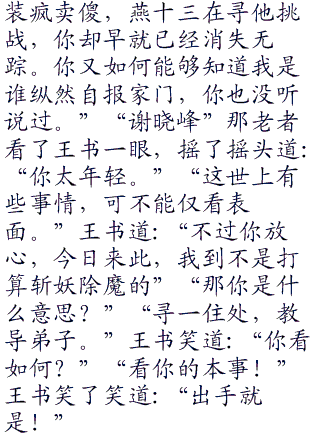 装疯卖傻，燕十三在寻他挑
战，你却早就已经消失无
踪。你又如何能够知道我是
谁纵然自报家门，你也没听
说过。”“谢晓峰”那老者
看了王书一眼，摇了摇头道:
“你太年轻。”“这世上有
些事情，可不能仅看表
面。”王书道:“不过你放
心，今日来此，我到不是打
算斩妖除魔的”“那你是什
么意思？”“寻一住处，教
导弟子。”王书笑道:“你看
如何？”“看你的本事！”
王书笑了笑道:“出手就
是！”